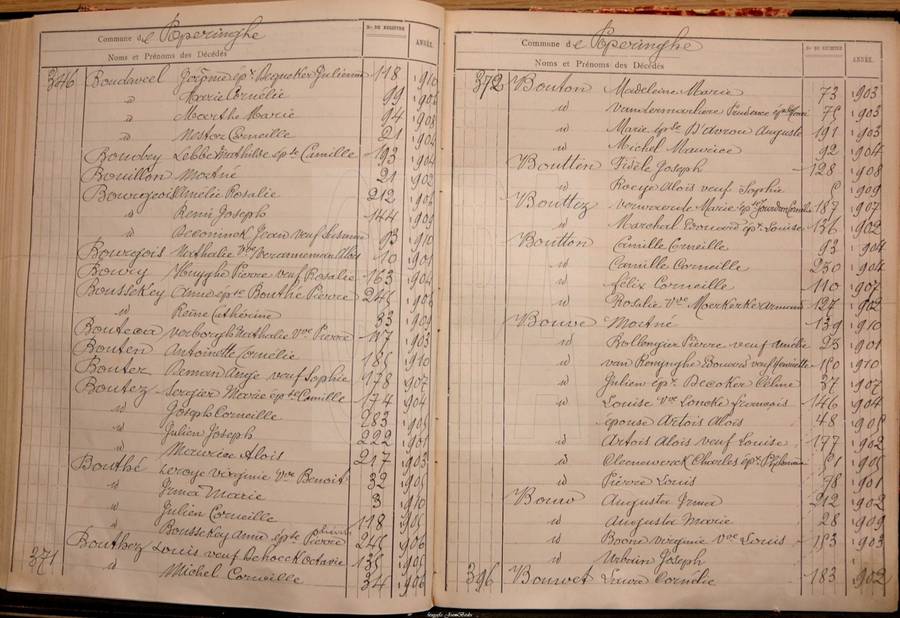 Commune de Poperinghe
Noms et Prénoms des Décédés
Nº DU REGISTRE
ANNÉE
346 Boudavel Joséphine épse Dequeker Julienne 118 1910
id Marie Cornélie 99
id Marthe Marie 94 1908
id Nestor Corneille 21 1904
Boudry Lebbe Mathilde épse Camille 193 1904
Bouillon Mortné 21 1902
Bourgeois Amélie Rosalie 212
id Remi Joseph 144 1909
id Jean veuf 93 1910
Bourgois Nathalie Vve Vverannemean Aloïs 10 1901
Boury Huyghe Pierre veuf Rosalie 163 1904
Boussekey Anne épse Bouthé Pierre 245 1906
id Reine Cathérine 33 1909
Nathalie Vve Pierre 1903
Bouten Antoinette Cornélie 185 1910
Boutez Deman Ange veuf Sophie 178 1907
Boutez Sergier Marie épse Camille 174 1904
id Joseph Corneille 283 1905
id Julien Joseph 222 1901
id Maurice Aloïs 217 1903
Bouthé Leroye Virginie Vve Benoit 32 1905
id Irma Marie 3 1910
id Julien Corneille 118 1905
id Boussekey Anne épse Pierre 245 1906
Bouthez Louis veuf Dehoeck Octavie 135 1905
371 id Michel Corneille 34 1906
Commune de Poperinghe
Noms et Prénoms des Décédés
Nº DU REGISTRE
ANNÉE
372 Bouton Madeleine Marie 73 1903
id Vandermarliere Prudence épse Henri 75 1903
id Marie épse D'avron Auguste 191 1903
id Michel Maurice 92 1904
Boutten Fidèle Joseph 128 1908
id Aloïs veuf Sophie 1909
Bouttez Marie épse Jourdan Cornélie 187 1907
id Marchal Edouard épx Louise 136 1902
Boutton Camille Corneille 93 1904
id Camille Corneille 230 1904
id Félix Corneille 110 1907
id Rosalie Vve Moerkerke Armand 127 1902
Bouve Mortné 139 1910
id Pierre veuf Amélie 23 1901
id van Renynghe Edouard veuf Henriette 150 1910
id Julien épx Decoker Céline 37 1907
id Louise Vve Loncke François 146 1904
épouse Artois Aloïs 48 1905
id Artois Aloïs veuf Louise 177 1902
id Cleenewerck Charles épx 51 1905
id Pierre Louis 78 1901
Bouw Augusta Irma 212 1902
id Augusta Marie 28 1909
id Boone Virginie Vve Louis 183 1903
id Urbain Joseph
396 Bouwet Cornélie 183 1902